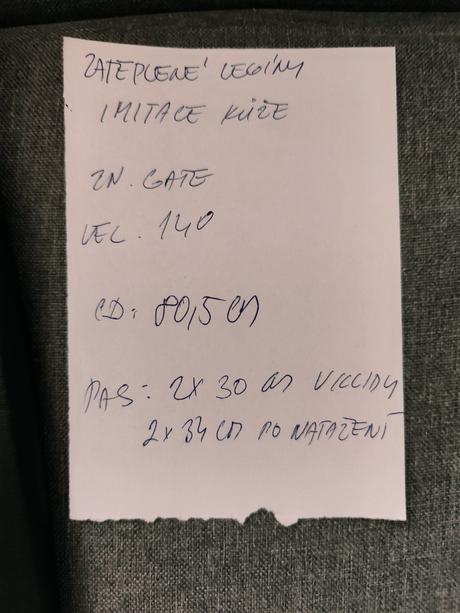 ZATEPLENÉ LEGÍNY
IMITACE KŮŽE
ZN. GATE
VEL. 140
CD: 80,5 CM
PAS: 2X 30 CM V KLIDU
2X 34 CM PO NATAŽENÍ